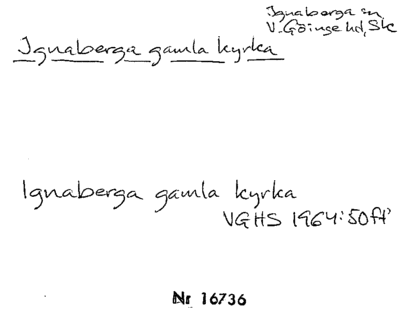 Ignaberga sn
V. Göinge hd, Sk
Ignaberga gamla kyrka
Ignaberga gamla kyrka
VGHS 1964:50ff
Nr 16736